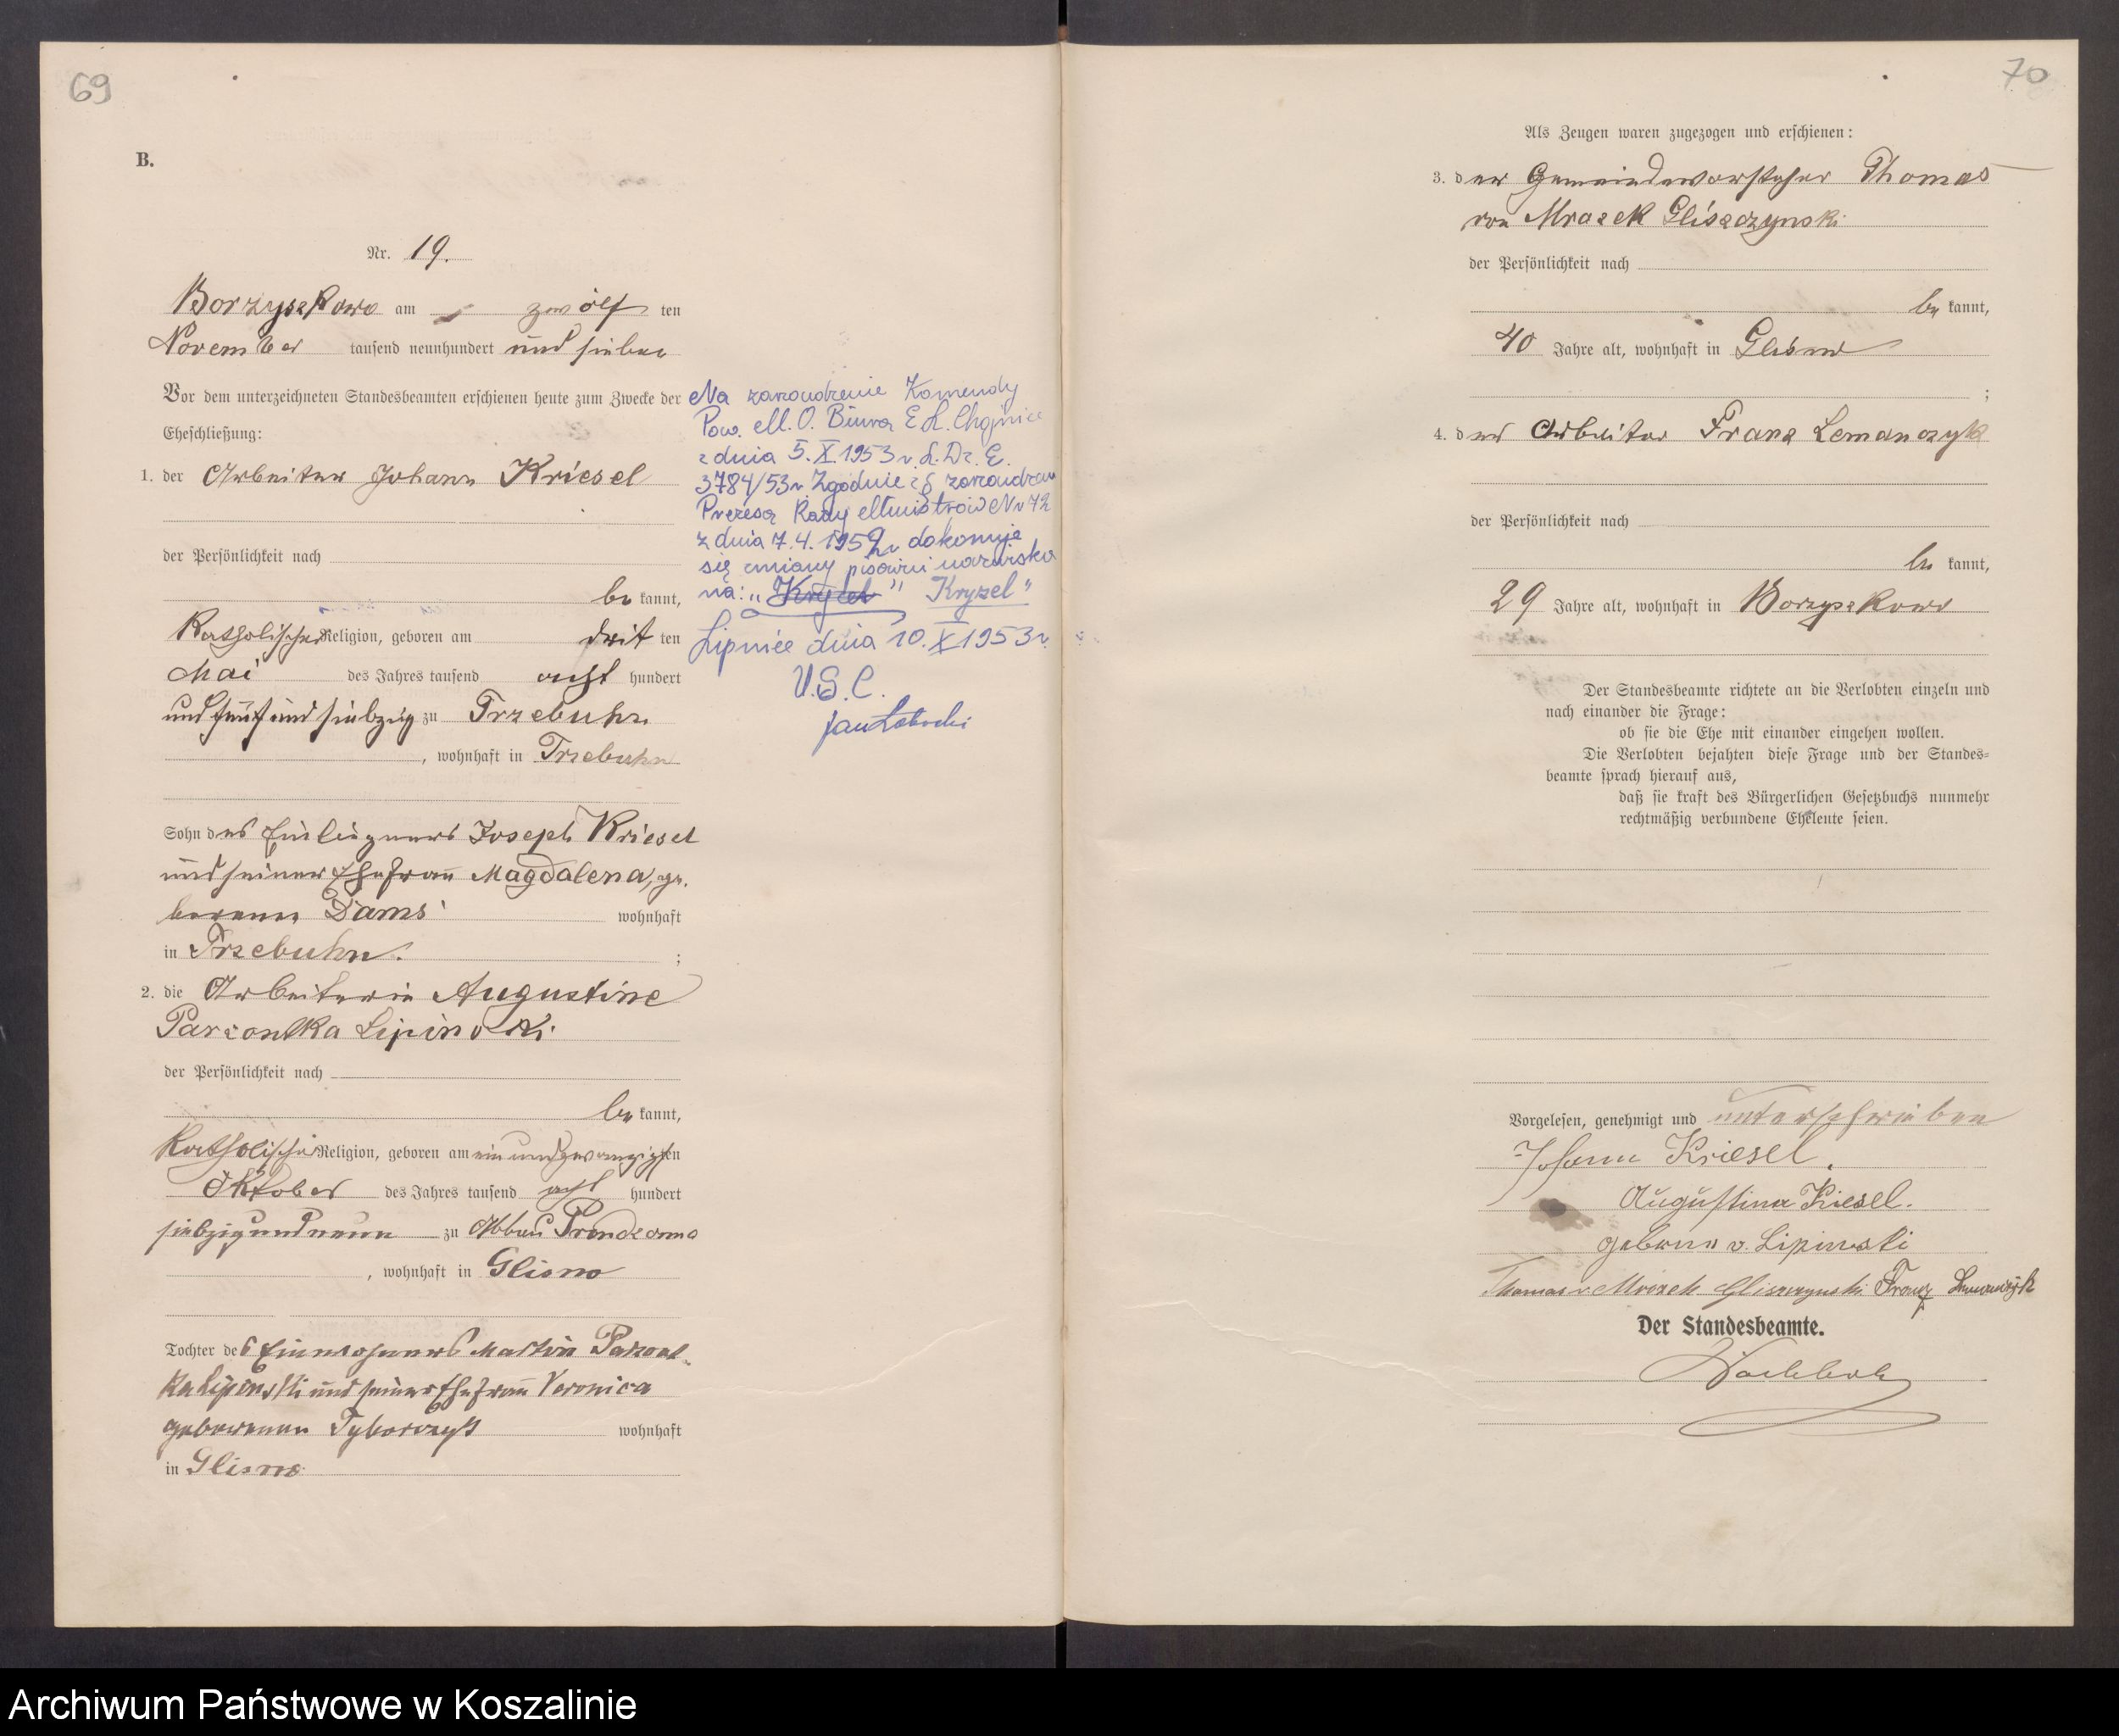 69
B.
Nr. 19.
Borzyszkowo am zwölf ten
November tausend neunhundert und sieben
Vor dem unterzeichneten Standesbeamten erschienen heute zum Zwecke der
Eheschließung:
1. der Arbeiter Johann Kriesel
der Persönlichkeit nach
be kannt,
Katholischer Religion, geboren am dritten
Mai des Jahres tausend acht hundert
und fünf und siebzig zu Trzebuhn
, wohnhaft in Trzebuhn
Sohn des Einliegners Joseph Kriesel
und seiner Ehefrau Magdalena, ge-
borenen Dams wohnhaft
in Trzebuhn. ;
2. die Arbeiterin Augustine
Parzontka Lipinski
der Persönlichkeit nach
be kannt,
Katholischer Religion, geboren am ein und zwanzigsten
Oktober des Jahres tausend acht hundert
siebzig und neun zu Abbau Prondzonna
, wohnhaft in Glisno
Tochter des Einwohners Martin Parzont-
ka Lipinski und seiner Ehefrau Veronica
geborenen Tyborczyk wohnhaft
in Glisno
Na zarządzenie Komendy
Pow. M.O. Biura E.L. Chojnice
z dnia 5.X.1953 r. L. Dz. E.
3784/53 r Zgodnie z § zarządzen
Prezesa Rady Ministrów Nr 72
z dnia 7.4.1952 r dokonuje
się zmiany pisowni nazwiska
na: " " Kryzel"
Lipnice dnia 10.X 1953 r.
U.S.C.
70
Als Zeugen waren zugezogen und erschienen:
3. der Gemeindevorsteher Thomas
von Mrozek Gliszczynski
der Persönlichkeit nach
be kannt,
40 Jahre alt, wohnhaft in Glisno
;
4. der Arbeiter Franz Lemanczyk
der Persönlichkeit nach
be kannt,
29 Jahre alt, wohnhaft in Borzyszkowo
Der Standesbeamte richtete an die Verlobten einzeln und
nach einander die Frage:
ob sie die Ehe mit einander eingehen wollen.
Die Verlobten bejahten diese Frage und der Standes-
beamte sprach hierauf aus,
daß sie kraft des Bürgerlichen Gesetzbuchs nunmehr
rechtmäßig verbundene Eheleute seien.
Vorgelesen, genehmigt und unterschrieben
Johann Kriesel.
Augustina Kiesel.
geborene v. Lipinski
Thomas v Mrozek Gliszczynski Franz Lemanczyk
Der Standesbeamte.
Archiwum Państwowe w Koszalinie